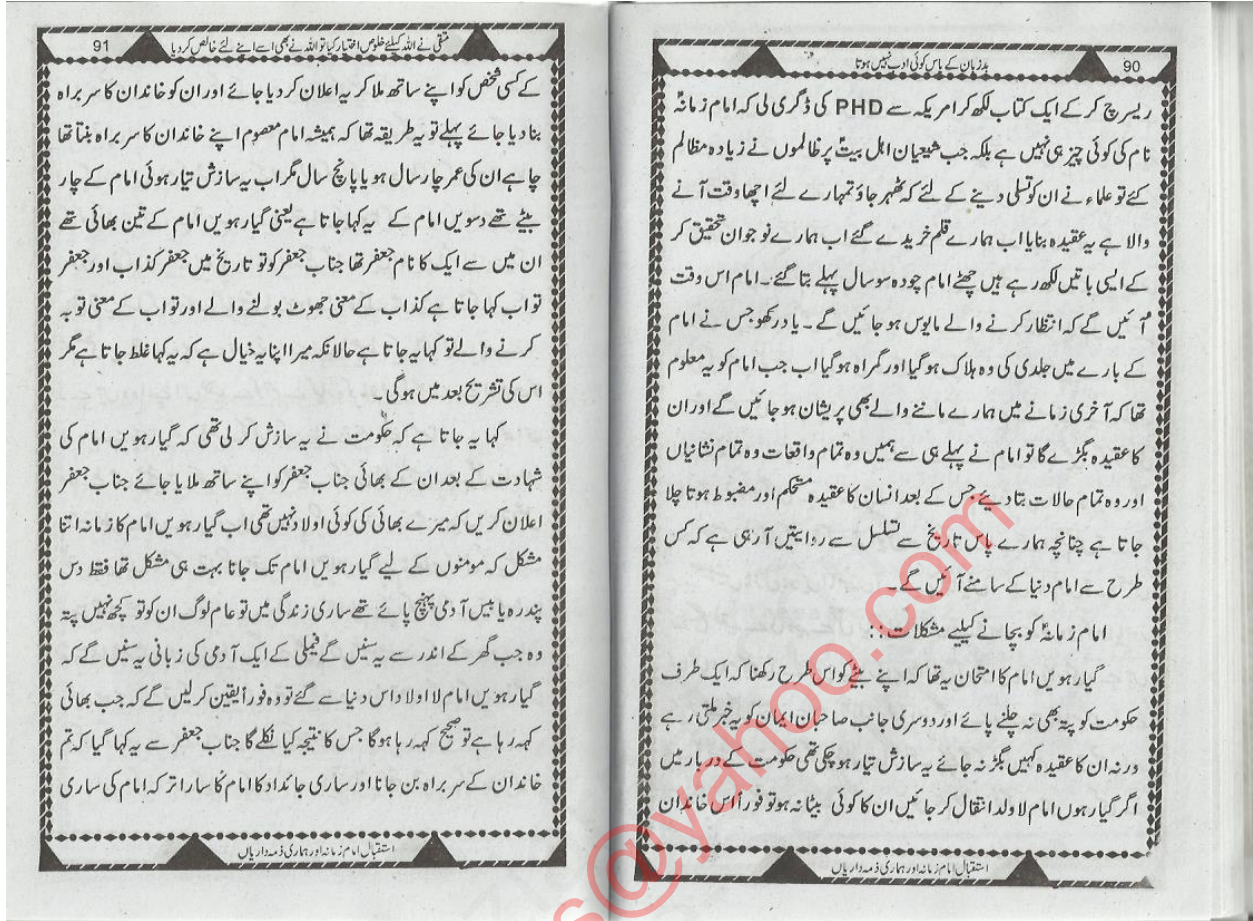 بدزبان کے پاس کوئی ادب نہیں ہوتا
90
ریسرچ کر کے ایک کتاب لکھ کر امریکہ سے PHD کی ڈگری لی کہ امام زمانہؑ
نام کی کوئی چیز ہی نہیں ہے بلکہ جب شیعیان اہل بیتؑ پر ظالموں نے زیادہ مظالم
کئے تو علماء نے ان کو تسلی دینے کے لئے کہ ٹھہر جاؤ تمہارے لئے اچھا وقت آنے
والا ہے یہ عقیدہ بنایا اب ہمارے قلم خریدے گئے اب ہمارے نوجوان تحقیق کر
کے ایسی باتیں لکھ رہے ہیں چھٹے امام چودہ سو سال پہلے بتا گئے۔ امام اس وقت
آئیں گے کہ انتظار کرنے والے مایوس ہو جائیں گے۔ یاد رکھو جس نے امام
کے بارے میں جلدی کی وہ ہلاک ہو گیا اور گمراہ ہو گیا اب جب امام کو یہ معلوم
تھا کہ آخری زمانے میں ہمارے ماننے والے بھی پریشان ہو جائیں گے اور ان
کا عقیدہ بگڑے گا تو امام نے پہلے ہی سے ہمیں وہ تمام واقعات وہ تمام نشانیاں
اور وہ تمام حالات بتا دیئے جس کے بعد انسان کا عقیدہ مستحکم اور مضبوط ہوتا چلا
جاتا ہے چنانچہ ہمارے پاس تاریخ سے تسلسل سے روایتیں آ رہی ہے کہ کس
طرح سے امام دنیا کے سامنے آئیں گے۔
امام زمانہؑ کو بچانے کیلیے مشکلات::
گیارہویں امام کا امتحان یہ تھا کہ اپنے بیٹے کو اس طرح رکھنا کہ ایک طرف
حکومت کو پتہ بھی نہ چلنے پائے اور دوسری جانب صاحبان ایمان کو یہ خبر ملتی رہے
ورنہ ان کا عقیدہ کہیں بگڑ نہ جائے یہ سازش تیار ہو چکی تھی حکومت کے دربار میں
اگر گیارہوں امام لا ولد انتقال کر جائیں ان کا کوئی بیٹا نہ ہو تو فوراً اس خاندان
استقبال امام زمانہ اور ہماری ذمہ داریاں
متقی نے اللہ کیلئے خلوص اختیار کیا تو اللہ نے بھی اسے اپنے لئے خالص کر دیا
91
کے کسی شخص کو اپنے ساتھ ملا کر یہ اعلان کر دیا جائے اور ان کو خاندان کا سربراہ
بنا دیا جائے پہلے تو یہ طریقہ تھا کہ ہمیشہ امام معصوم اپنے خاندان کا سربراہ بنتا تھا
چاہے ان کی عمر چار سال ہو یا پانچ سال مگر اب یہ سازش تیار ہوئی امام کے چار
بیٹے تھے دسویں امام کے یہ کہا جاتا ہے یعنی گیارہویں امام کے تین بھائی تھے
ان میں سے ایک کا نام جعفر تھا جناب جعفر کو تو تاریخ میں جعفر کذاب اور جعفر
تواب کہا جاتا ہے کذاب کے معنی جھوٹ بولنے والے اور تواب کے معنی توبہ
کرنے والے تو کہا یہ جاتا ہے حالانکہ میرا اپنا یہ خیال ہے کہ یہ کہا غلط جاتا ہے مگر
اس کی تشریح بعد میں ہوگی۔
کہا یہ جاتا ہے کہ حکومت نے یہ سازش کر لی تھی کہ گیارہویں امام کی
شہادت کے بعد ان کے بھائی جناب جعفر کو اپنے ساتھ ملایا جائے جناب جعفر
اعلان کریں کہ میرے بھائی کی کوئی اولاد نہیں تھی اب گیارہویں امام کا زمانہ اتنا
مشکل کہ مومنوں کے لیے گیارہویں امام تک جانا بہت ہی مشکل تھا فقط دس
پندرہ یا بیس آدمی پہنچ پائے تھے ساری زندگی میں تو عام لوگ ان کو تو کچھ نہیں پتہ
وہ جب گھر کے اندر سے یہ سنیں گے فیملی کے ایک آدمی کی زبانی یہ سنیں گے کہ
گیارہویں امام لا اولاد اس دنیا سے گئے تو وہ فوراً یقین کر لیں گے کہ جب بھائی
کہہ رہا ہے تو صحیح کہہ رہا ہوگا جس کا نتیجہ کیا نکلے گا جناب جعفر سے یہ کہا گیا کہ تم
خاندان کے سربراہ بن جانا اور ساری جائداد کا امام کا سارا ترکہ امام کی ساری
استقبال امام زمانہ اور ہماری ذمہ داریاں
s@yahoo.com